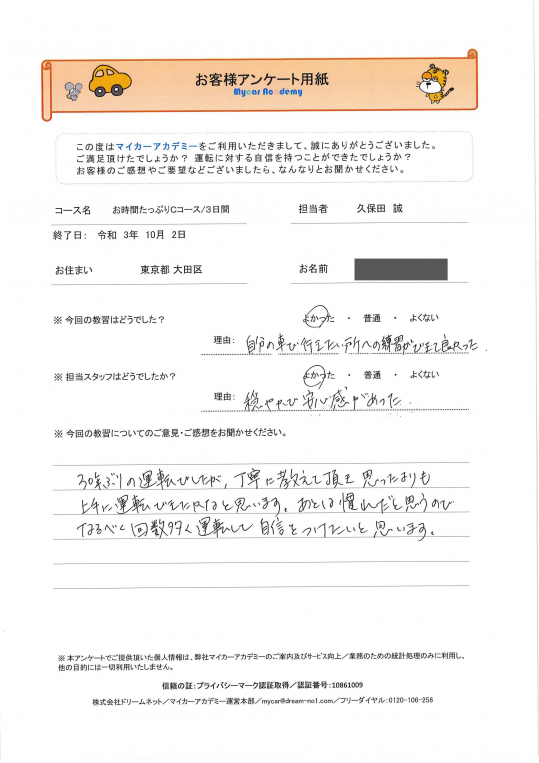 お客様アンケート用紙
Mycar Academy
この度はマイカーアカデミーをご利用いただきまして、誠にありがとうございました。
ご満足頂けたでしょうか？ 運転に対する自信を持つことができたでしょうか？
お客様のご感想やご要望などございましたら、なんなりとお聞かせください。
コース名 お時間たっぷりCコース/3日間 担当者 久保田 誠
終了日: 令和 3年 10月 2日
お住まい 東京都 大田区 お名前
※ 今回の教習はどうでした？ よかった ・ 普通 ・ よくない
理由: 自分の車で行きたい所への練習ができて良かった.
※ 担当スタッフはどうでしたか？ よかった ・ 普通 ・ よくない
理由: 穏やかで安心感があった.
※ 今回の教習についてのご意見・ご感想をお聞かせください。
30年ぶりの運転でしたが, 丁寧に教えて頂き 思ったよりも
上手に運転できたかなと思います。あとは慣れだと思うので
なるべく回数多く運転して自信をつけたいと思います。
※ 本アンケートでご提供頂いた個人情報は、弊社マイカーアカデミーのご案内及びサービス向上／業務のための統計処理のみに利用し、
他の目的には一切利用いたしません。
信頼の証：プライバシーマーク認証取得／認証番号：10861009
株式会社ドリームネット／マイカーアカデミー運営本部／mycar@dream-no1.com／フリーダイヤル：0120-106-256